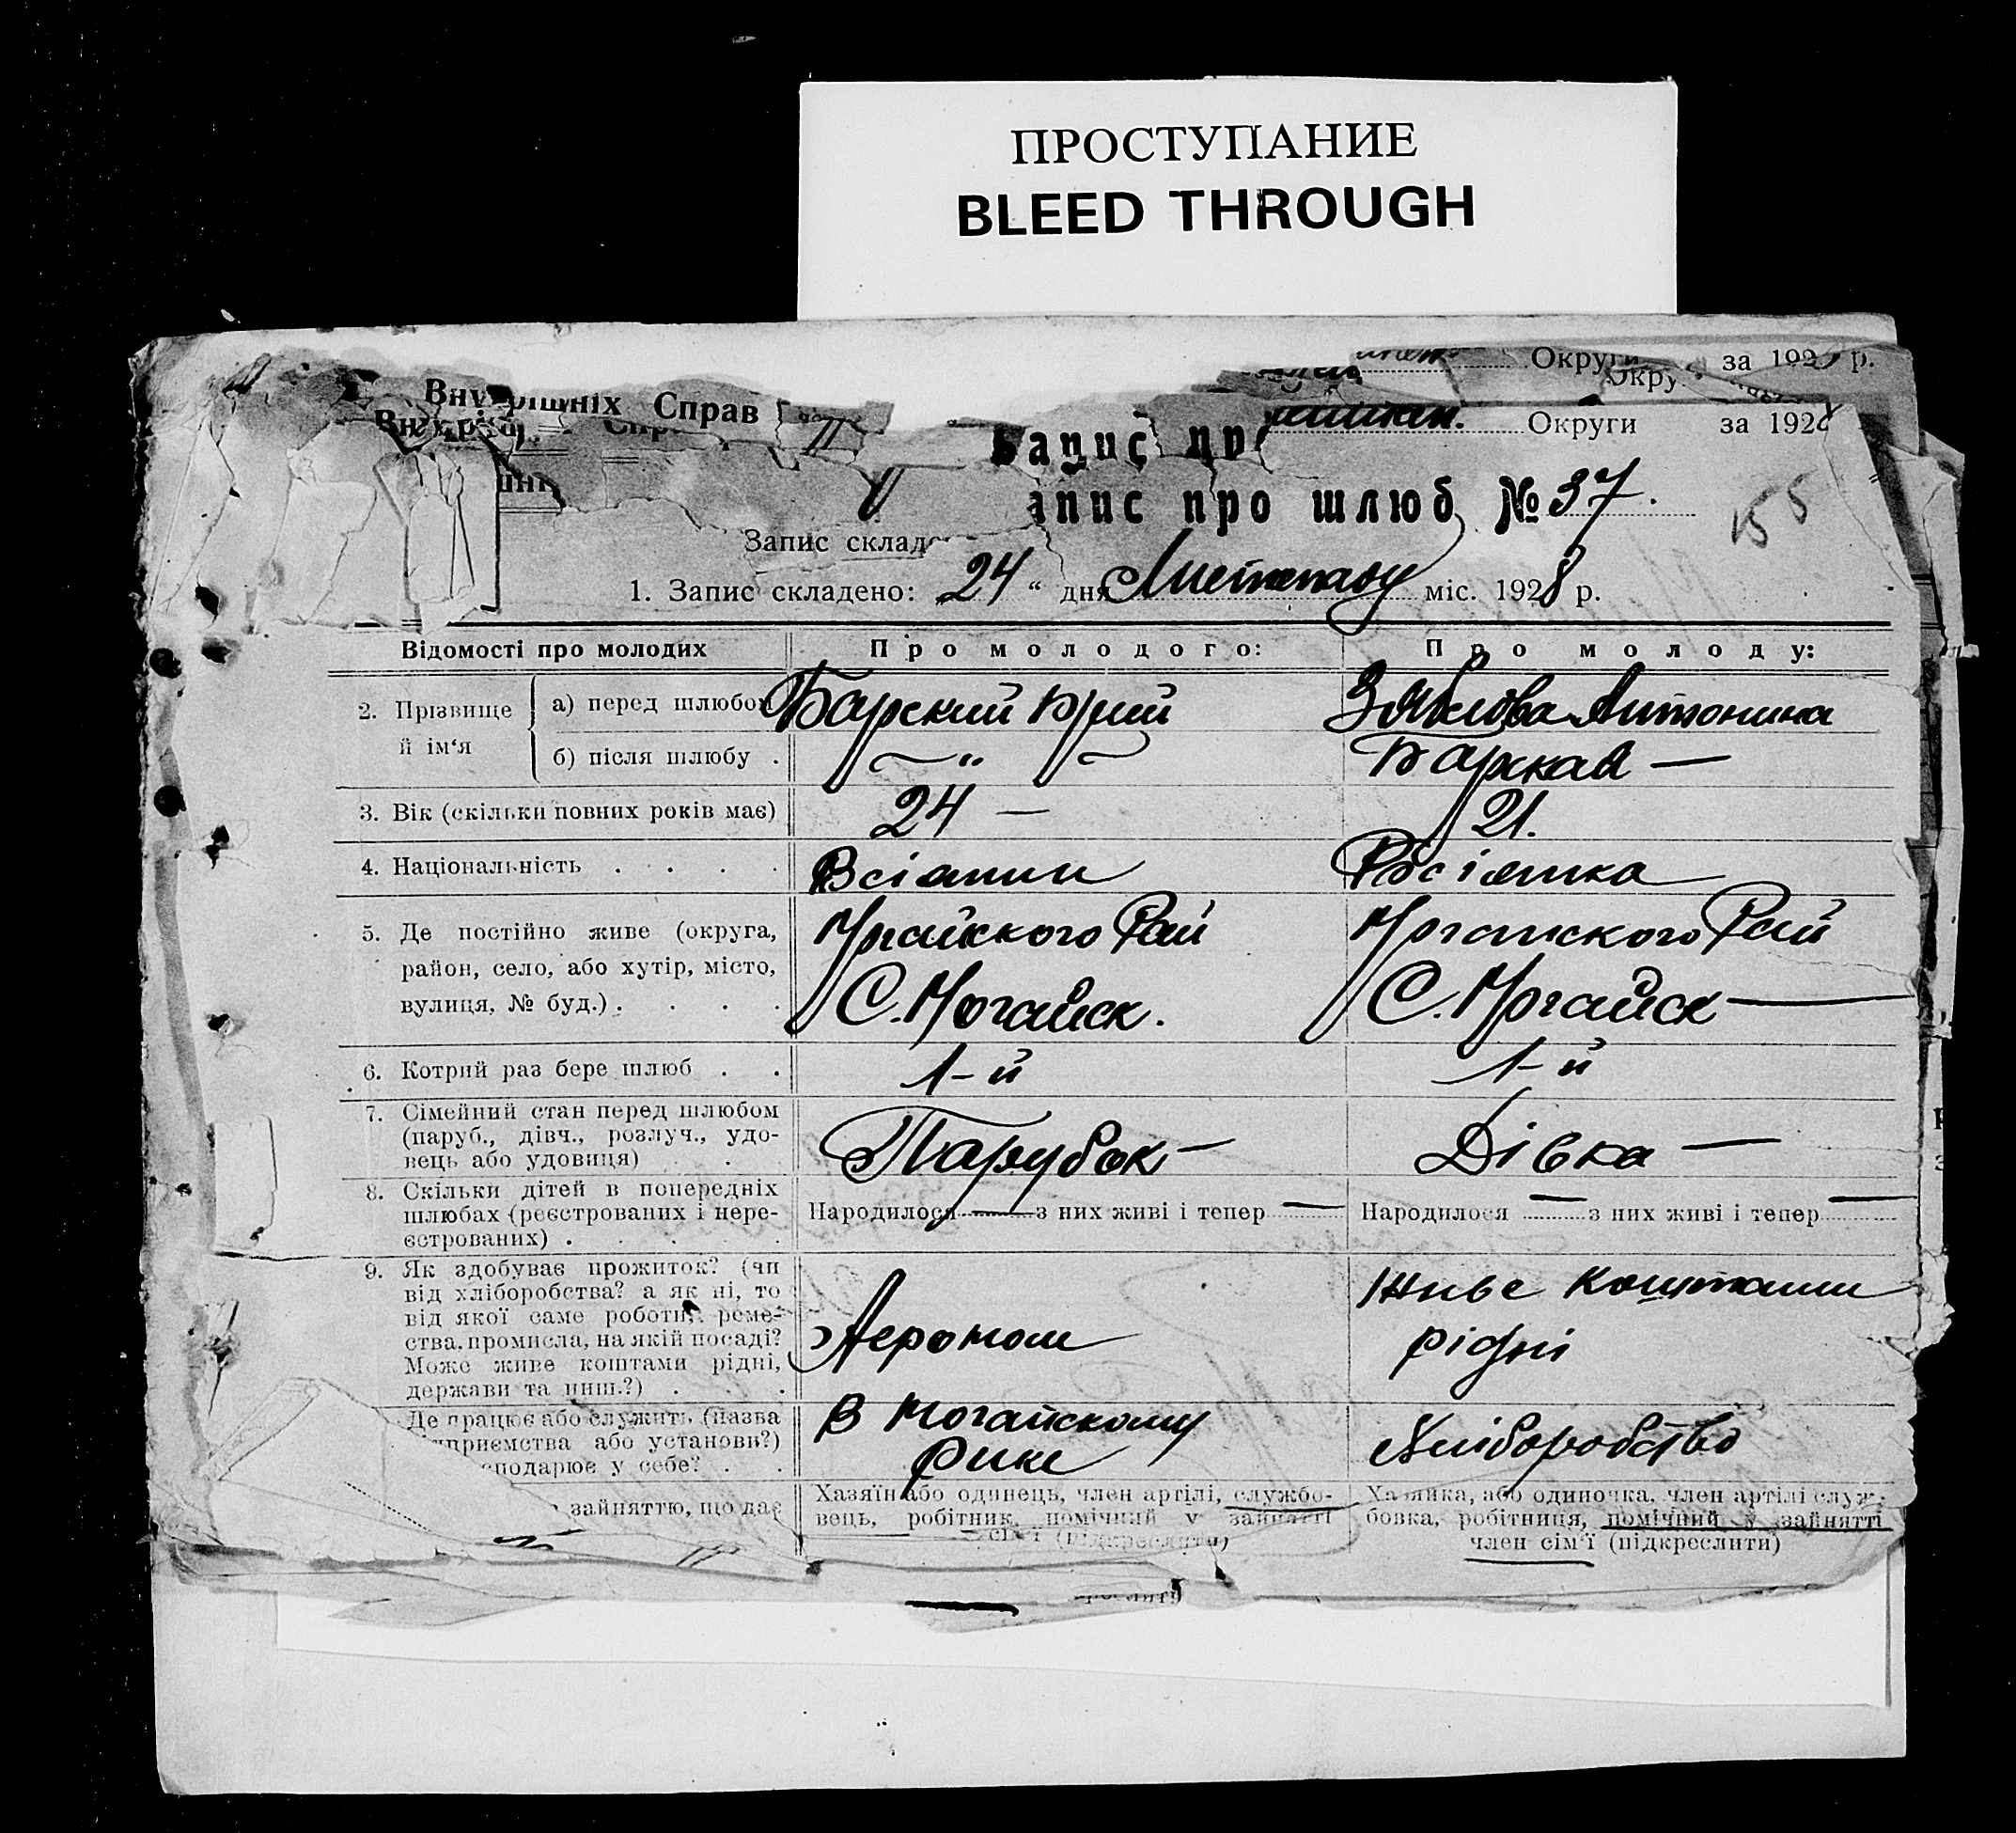 ПРОСТУПАНИЕ
BLEED THROUGH
Округи за 192 р.
Внутрішніх Справ
Округи за 1928
Запис про
апис про шлюб № 37.
155
Запис складе
1. Запис складено: „24“ дня Листопаду міс. 1928 р.
Відомості про молодих
Про молодого:
Про молоду:
2. Прізвище й ім‘я
а) перед шлюбом
Барский Юрий
Зяблова Антонина
б) після шлюбу .
— „ —
Барская —
3. Вік (скільки повних років має)
24 —
21.
4. Національність . . . .
Росіянка
5. Де постійно живе (округа,
район, село, або хутір, місто,
вулиця, № буд.) . . . .
Ногайского Рай
С. Ногайск.
Ногайского Рай
С. Ногайск —
6. Котрий раз бере шлюб . .
1-й
1-й
7. Сімейний стан перед шлюбом
(паруб., дівч., розлуч., удо-
вець або удовиця) . .
Парубок —
Дівка —
8. Скільки дітей в попередніх
шлюбах (реєстрованих і нере-
єстрованих) . . . . .
Народилося — з них живі і тепер —
Народилося — з них живі і тепер —
9. Як здобуває прожиток? (чи
від хліборобства? а як ні, то
від якої саме роботи, реме-
ства, промисла, на якій посаді?
Може живе коштами рідні,
держави та инш.?) . . .
Агроном
Живе коштами
рідні
Де працює або служить (назва
приємства або установи?)
сподарює у себе? . .
В Ногайскому
Рике
Хліборобство
зайняттю, що дає
Хазяїн або одинець, член артілі, службо-
вець, робітник, помічний у зайнятті
сім‘ї (підкреслити)
Хазяйка, або одиночка, член артілі служ-
бовка, робітниця, помічний у зайнятті
член сім‘ї (підкреслити)